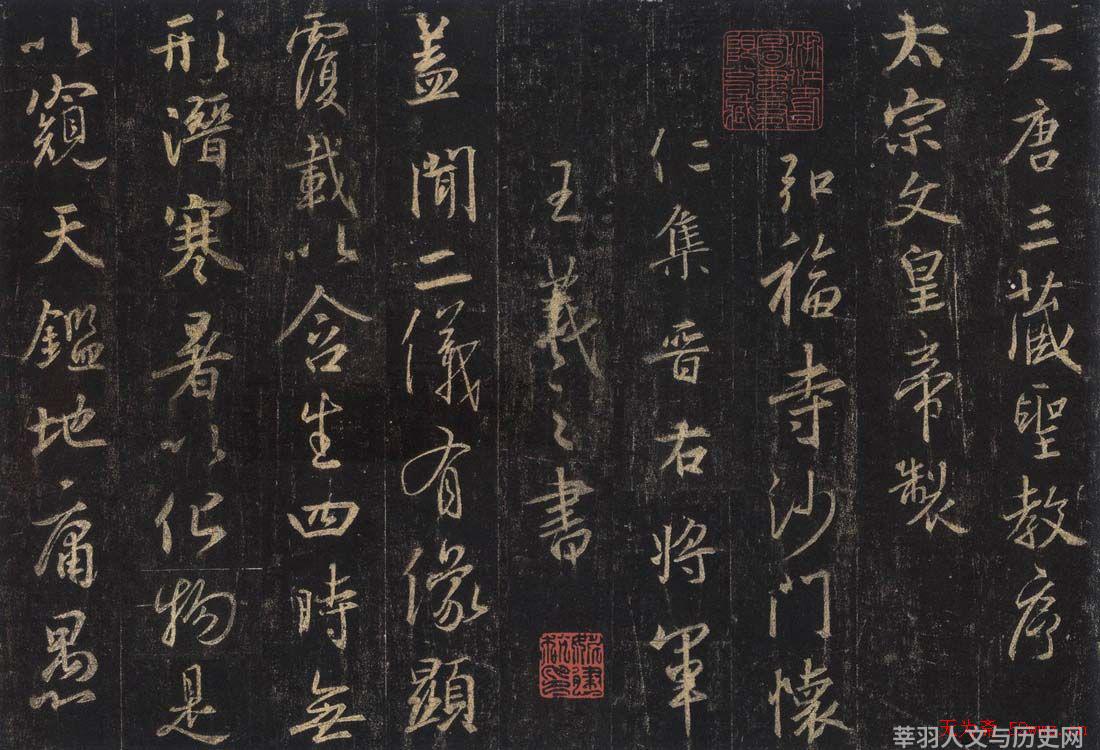 大唐三藏聖教序
太宗文皇帝製
弘福寺沙門懷
仁集晉右將軍
王羲之書
蓋聞二儀有像顯
覆載以含生四時無
形潛寒暑以化物是
以窺天鑑地庸愚
莘羽人文与历史网